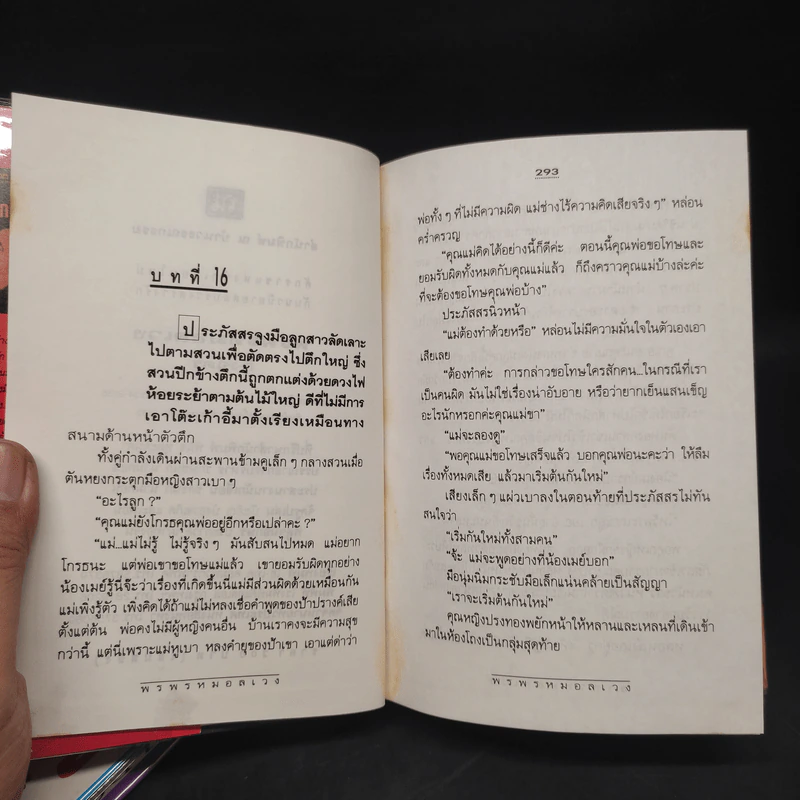 บทที่ 16
ประภัสสรจูงมือลูกสาวลัดเลาะ
ไปตามสวนเพื่อตัดตรงไปตึกใหญ่ ซึ่ง
สวนปีกข้างตึกนี้ถูกตกแต่งด้วยดวงไฟ
ห้อยระย้าตามต้นไม้ใหญ่ ดีที่ไม่มีการ
เอาโต๊ะเก้าอี้มาตั้งเรียงเหมือนทาง
สนามด้านหน้าตัวตึก
ทั้งคู่กำลังเดินผ่านสะพานข้ามคูเล็กๆ กลางสวนเมื่อ
ตันหยงกระตุกมือหญิงสาวเบาๆ
“อะไรลูก ?”
“คุณแม่ยังโกรธคุณพ่ออยู่อีกหรือเปล่าคะ ?”
“แม่...แม่ไม่รู้ ไม่รู้จริงๆ มันสับสนไปหมด แม่อยาก
โกรธนะ แต่พ่อเขาขอโทษแม่แล้ว เขายอมรับผิดทุกอย่าง
น้องเมย์รู้นี่จ๊ะว่าเรื่องที่เกิดขึ้นนี่แม่มีส่วนผิดด้วยเหมือนกัน
แม่เพิ่งรู้ตัว เพิ่งคิดได้ถ้าแม่ไม่หลงเชื่อคำพูดของป้าปรางค์เสีย
ตั้งแต่ต้น พ่อคงไม่มีผู้หญิงคนอื่น บ้านเราคงจะมีความสุข
กว่านี้ แต่นี่เพราะแม่หูเบา หลงคำยุของป้าเขา เอาแต่ต่าว่า
พรพรหมอลเวง
293
พ่อทั้งๆ ที่ไม่มีความผิด แม่ช่างไร้ความคิดเสียจริงๆ” หล่อน
คร่ำครวญ
“คุณแม่คิดได้อย่างนี้ก็ดีค่ะ ตอนนี้คุณพ่อขอโทษและ
ยอมรับผิดทั้งหมดกับคุณแม่แล้ว ก็ถึงคราวคุณแม่บ้างล่ะค่ะ
ที่จะต้องขอโทษคุณพ่อบ้าง”
ประภัสสรนิ่วหน้า
“แม่ต้องทำด้วยหรือ” หล่อนไม่มีความมั่นใจในตัวเองเอา
เสียเลย
“ต้องทำค่ะ การกล่าวขอโทษใครสักคน...ในกรณีที่เรา
เป็นคนผิด มันไม่ใช่เรื่องน่าอับอาย หรือว่ายากเย็นแสนเข็ญ
อะไรนักหรอกค่ะคุณแม่ขา”
“แม่จะลองดู”
“พอคุณแม่ขอโทษเสร็จแล้ว บอกคุณพ่อนะคะว่า ให้ลืม
เรื่องทั้งหมดเสีย แล้วมาเริ่มต้นกันใหม่”
เสียงเล็กๆ แผ่วเบาลงในตอนท้ายที่ประภัสสรไม่ทัน
สนใจว่า
“เริ่มกันใหม่ทั้งสามคน”
“จ้ะ แม่จะพูดอย่างที่น้องเมย์บอก”
มือนุ่มนิ่มกระชับมือเล็กแน่นคล้ายเป็นสัญญา
“เราจะเริ่มต้นกันใหม่”
คุณหญิงปรงทองพยักหน้าให้หลานและเหลนที่เดินเข้า
มาในห้องโถงเป็นกลุ่มสุดท้าย
พรพรหมอลเวง